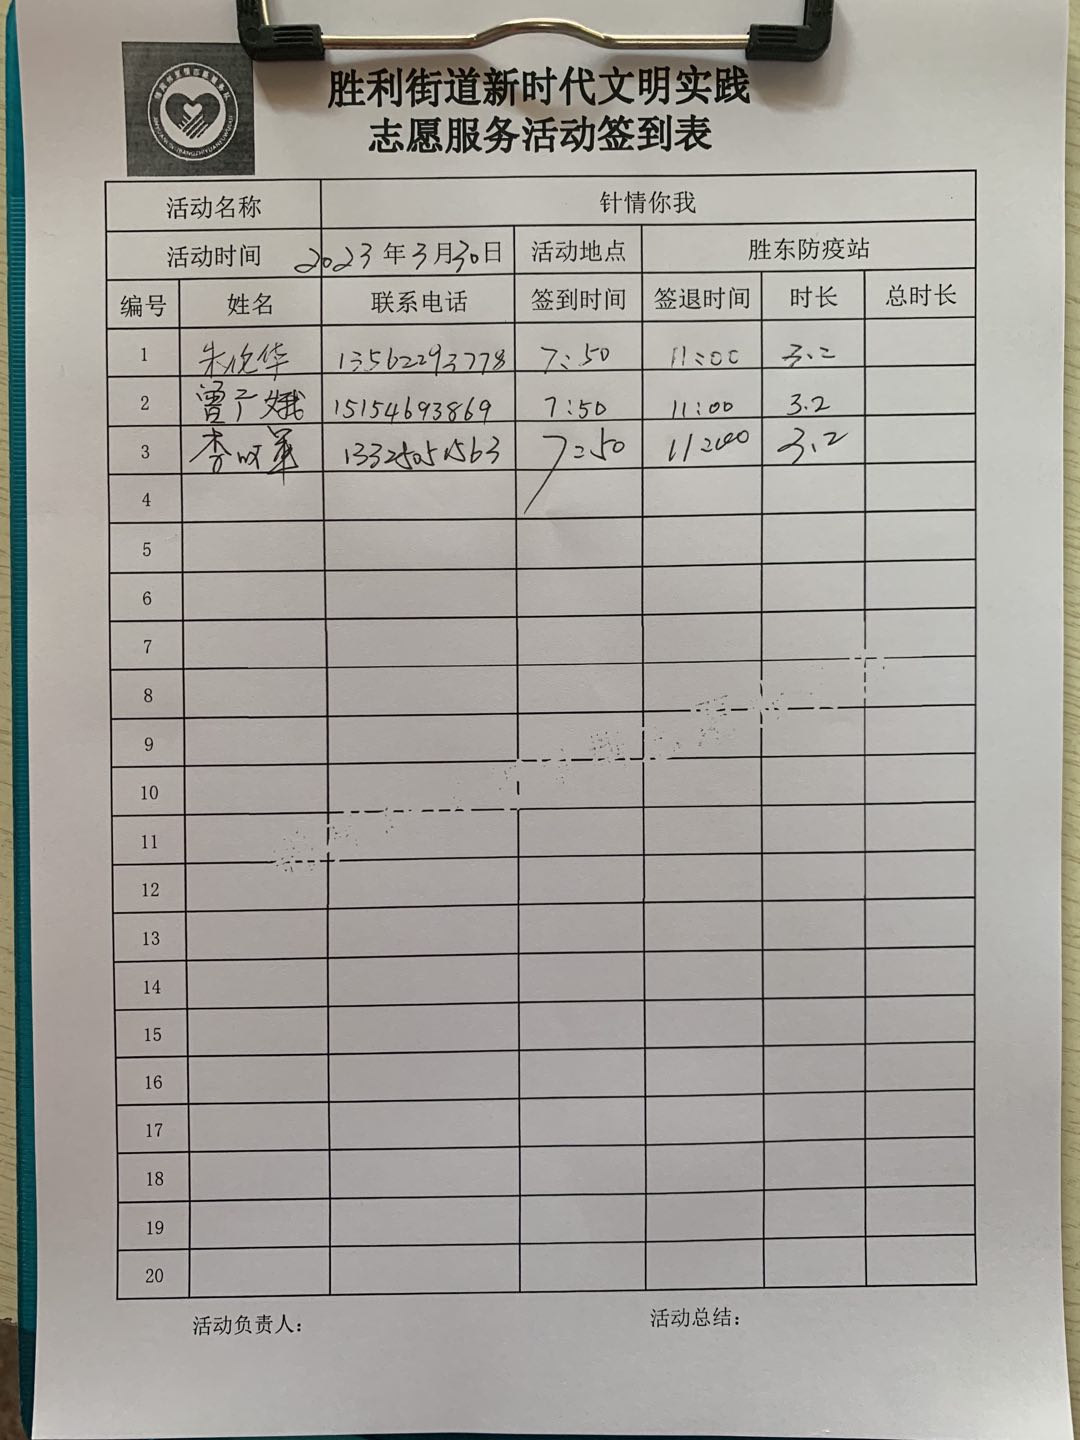 胜利街道新时代文明实践
志愿服务活动签到表
活动名称 针情你我
活动时间 2023年3月30日 活动地点 胜东防疫站
编号 姓名 联系电话 签到时间 签退时间 时长 总时长
1 朱悦华 13562293778 7:50 11:00 3.2
2 曾广娥 15154693869 7:50 11:00 3.2
3 李 军 7:50 11:00 3.2
4
5
6
7
8
9
10
11
12
13
14
15
16
17
18
19
20
活动负责人: 活动总结: